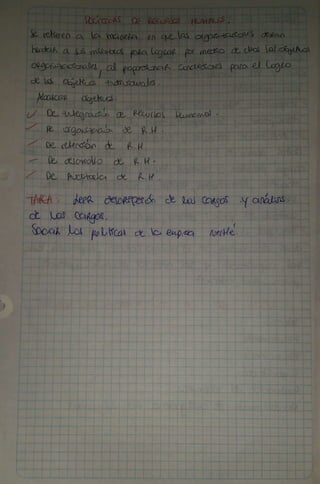 Políticas de Recursos Humanos.
Se refieren a la manera en que las organizaciones desean
tratar a sus miembros para lograr por medio de ellos los objetivos
organizacionales, al proporcionar condiciones para el logro
de los objetivos individuales.
Abarcar objetivos:
✓ De integración de Recursos Humanos.
✓ De organización de R.H.
✓ De retención de R.H
✓ De desarrollo de R.H.
✓ De Auditoría de R.H.
TAREA: Leer descripción de los cargos y análisis
de los cargos.
Sacar las políticas de la empresa Nestlé